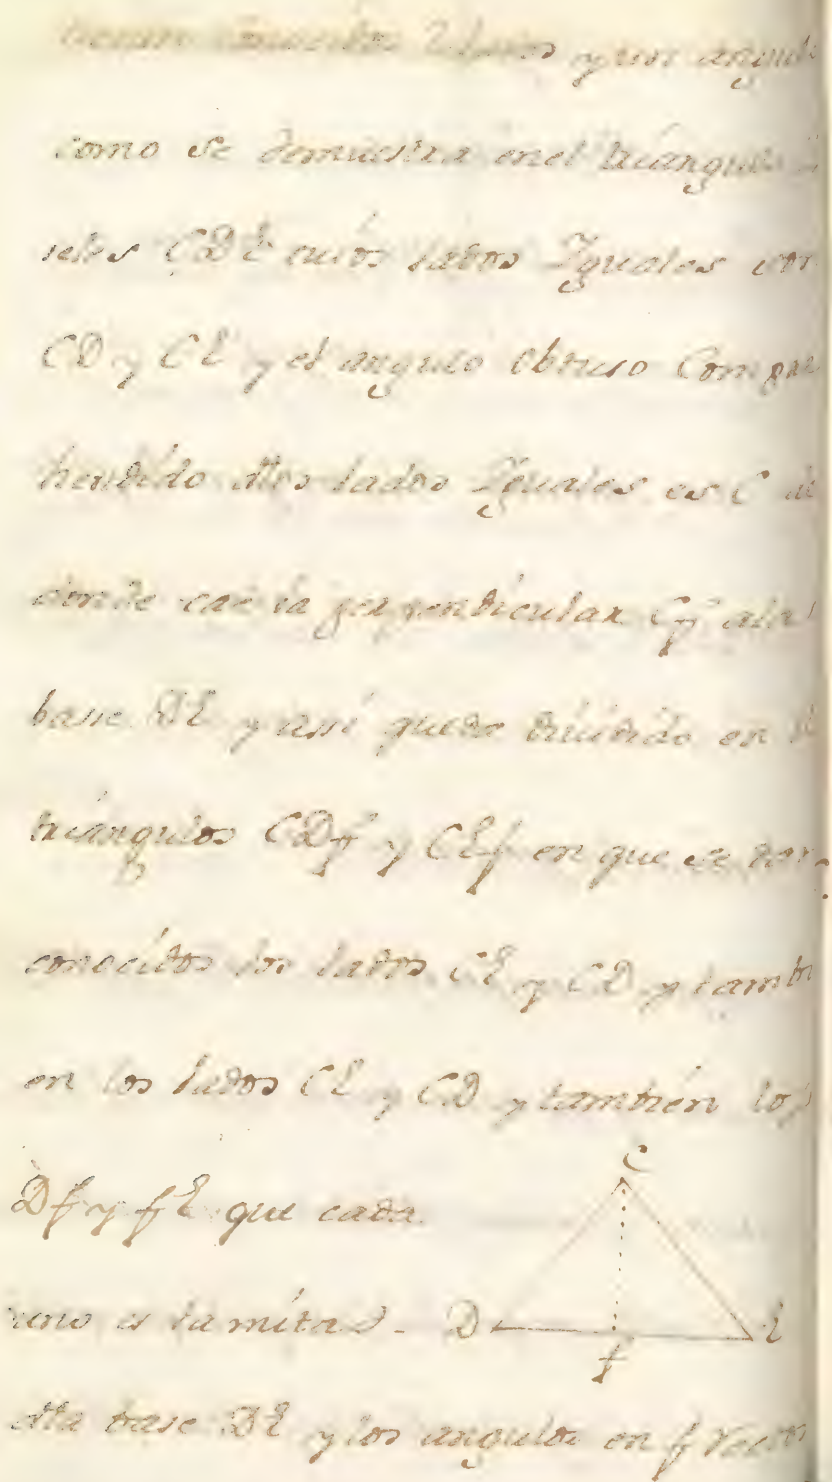 2 lados y un angulo
como se demuestra en el triangulo
seles CDE cuios lados Iguales son
CD y CE y el angulo obtuso Compre
hendido dlos lados Iguales es C de
donde cae la perpendicular Cf ala
base DE y assi queda dividido en
triangulos CDf y CEf en que se dan
conocidos los lados CE y CD y tambi
en los lados CE y CD y tambien los
C
Df y fE que cada
uno es la mitad - D E
f
dla base DE y los angulos en f rectos